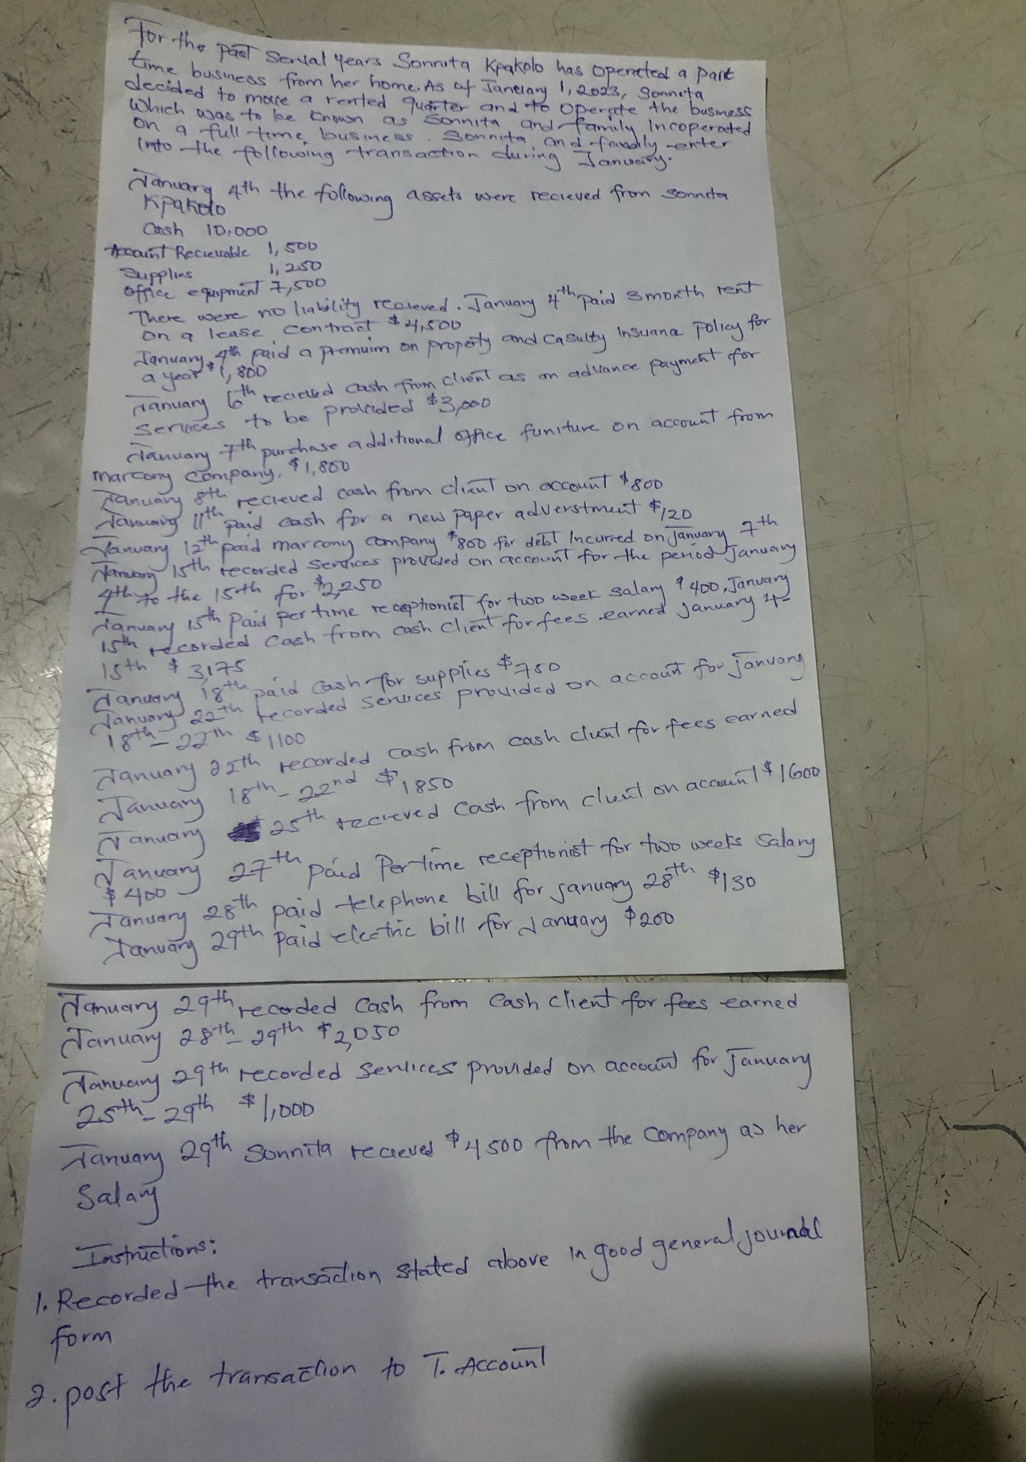 For the past serval years Sonnita Kpakolo has operated a part
time business from her home. As of Janclary 1, 2023, Sonnita
decided to move a rented quarter and to operate the business
which was to be known as Sonnita and family Incoperated
on a full time business. Sonnita and family enter
Into the following transaction during January.
January 4th the following assets were recieved from Sonnita
Kpakolo
Cash 10,000
Account Recieuable 1,500
Supplies 1,250
Office equipment 7,500
There were no liability recieved. January 4th paid 3 month rent
on a lease contract $4,500
January 4th paid a premuim on property and casulty Insuance policy for
a year $1,800
January 6th recieved cash from client as an advance payment for
services to be provided $3,000
January 7th purchase additional office funiture on account from
marcony company, $1,800
January 8th recieved cash from client on account $800
January 11th paid cash for a new paper adverstment $120
January 12th paid marcony company $800 for debt Incurred on January 7th
January 15th recorded services provided on account for the period January
4th to the 15th for $2,250
January 15th paid per time receptionist for two week salary $400, January
15th recorded cash from cash client for fees earned January 4-
15th $3,175
January 18th paid cash for supplies $750
January 22th recorded services provided on account for January
18th-22th $1100
January 22th recorded cash from cash client for fees earned
January 18th-22nd $1850
January 25th recieved cash from client on account $1600
January 27th paid Per time receptionist for two weeks salary
$400
January 28th paid telephone bill for January 28th $130
January 29th paid electric bill for January $200
January 29th recorded cash from cash client for fees earned
January 28th-29th $2,050
January 29th recorded services provided on account for January
25th-29th $1,000
January 29th Sonnita recieved $4500 from the company as her
Salary
Instructions:
1. Recorded the transaction stated above in good general journal
form
2. post the transaction to T. Account